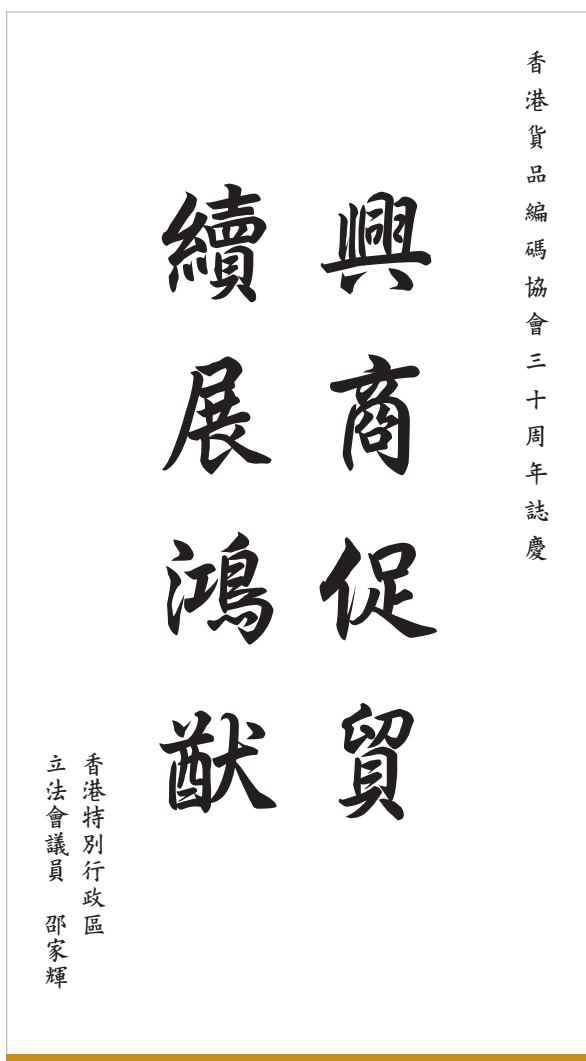 香港貨品編碼協會三十周年誌慶
興商促貿
續展鴻猷
香港特別行政區
立法會議員 邵家輝